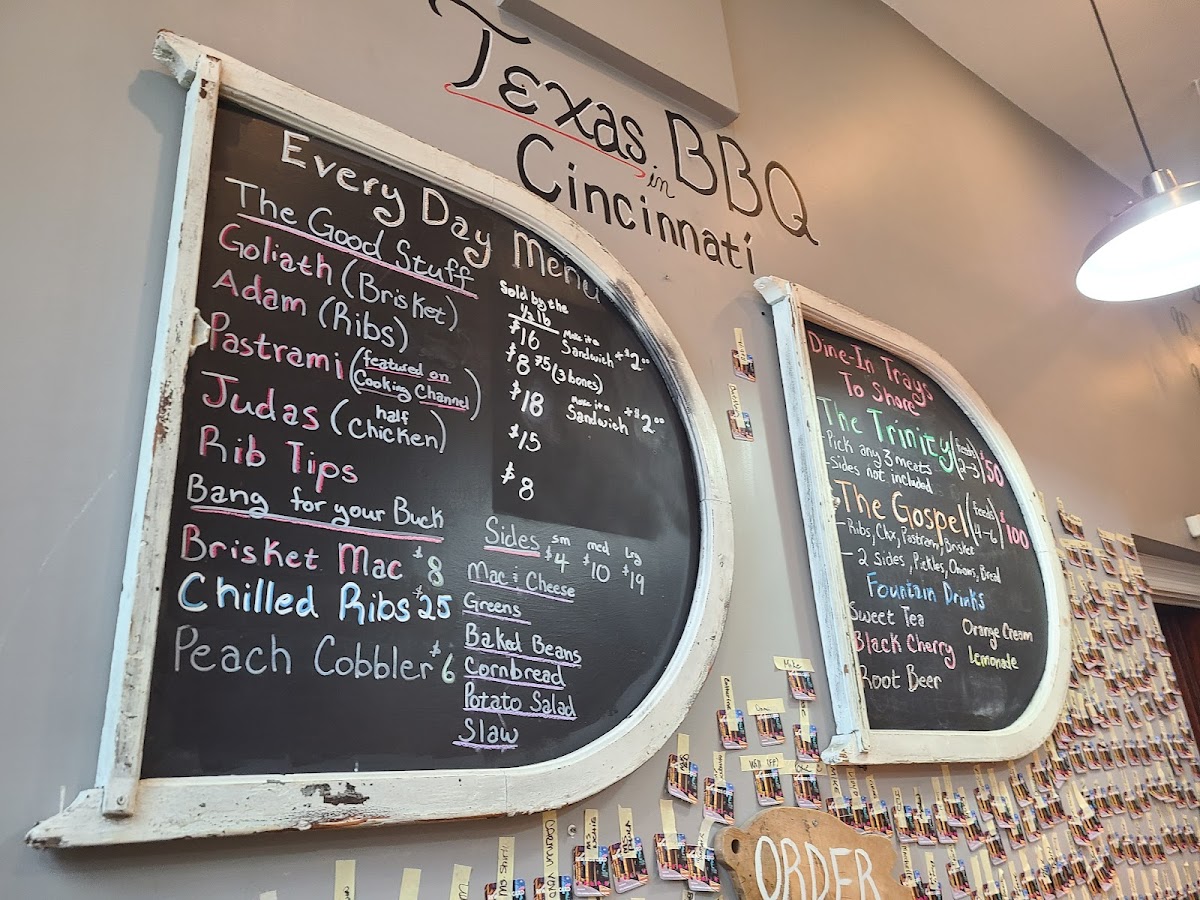 Texas in BBQ
Cincinnati
Every Day Menu
The Good Stuff
Sold by the
1/2 lb
Goliath (Brisket) $16 Make it a Sandwich + $2.00
Adam (Ribs) $8.75 (3 bones)
Pastrami (featured on Cooking Channel) $18 Make it a Sandwich + $2.00
Judas (half Chicken) $15
Rib Tips $8
Bang for your Buck
Brisket Mac $8
Chilled Ribs $25
Peach Cobbler $6
Sides sm $4 med $10 lrg $19
Mac & Cheese
Greens
Baked Beans
Cornbread
Potato Salad
Slaw
Dine-In Trays
To Share
The Trinity (feeds 2-3) $50
-Pick any 3 meats
-Sides not included
The Gospel (feeds 4-6) $100
-Ribs, Chx, Pastrami, Brisket
-2 Sides, Pickles, Onions, Bread
Fountain Drinks
Sweet Tea
Black Cherry
Root Beer
Orange Cream
Lemonade
Mike
ORDER